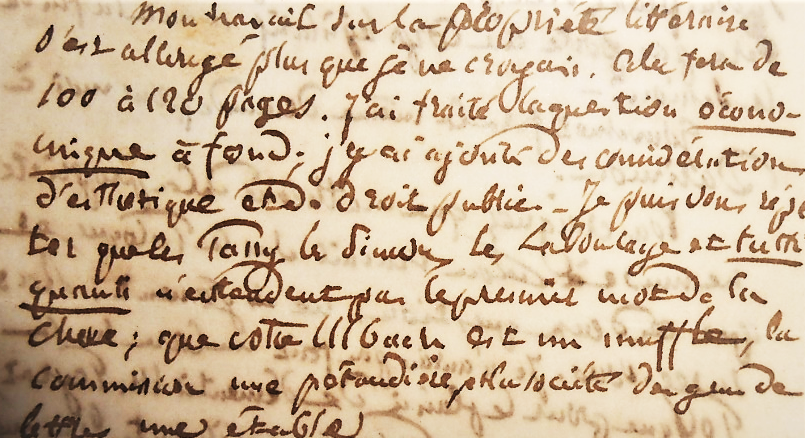 Mon travail sur la propriété littéraire
s'est allongé plus que je ne croyais. Cela fera de
100 à 120 pages. J'ai traité la question écono-
mique à fond; j'y ai ajouté des considérations
d'esthétique et de droit public. - Je puis vous répé-
ter que les Passy, les Simon, les Laboulaye et tutti
quanti n'entendent pas le premier mot de la
chose; que votre Ulbach est un muffle, la
commission une pétaudière, et la société des gens de
lettres une étable